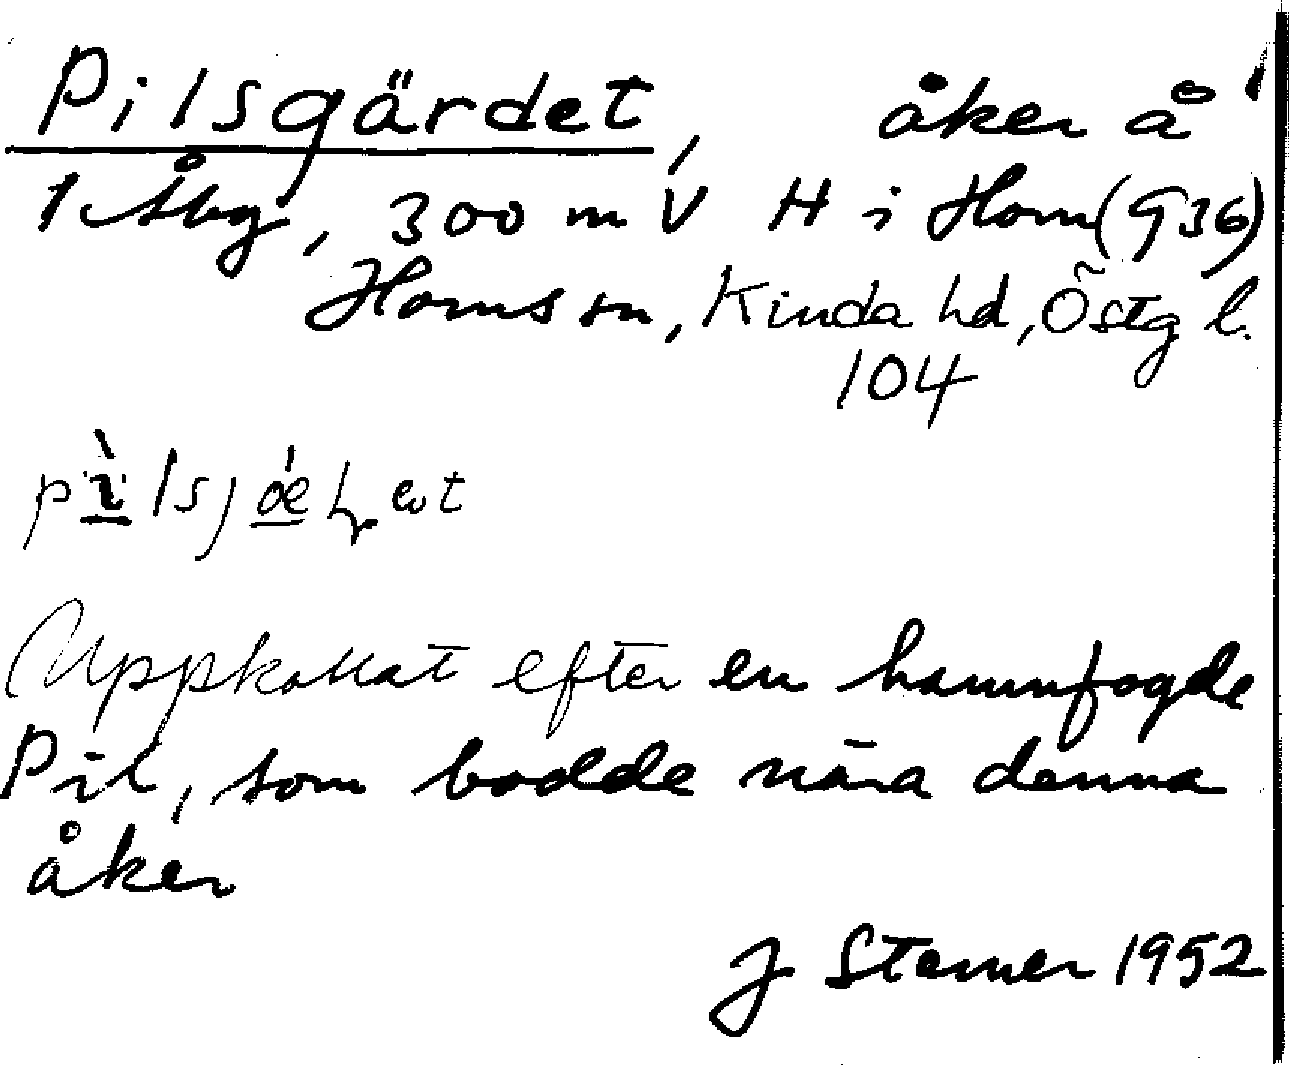 Pilsgärdet, åker å
1 Åbg, 300 m V H i Horn (G36)
Horns sn, Kinda hd, Östg l.
104
Uppkallat efter en hamnfogde
Pil, som bodde nära denna
åker
J Sterner 1952